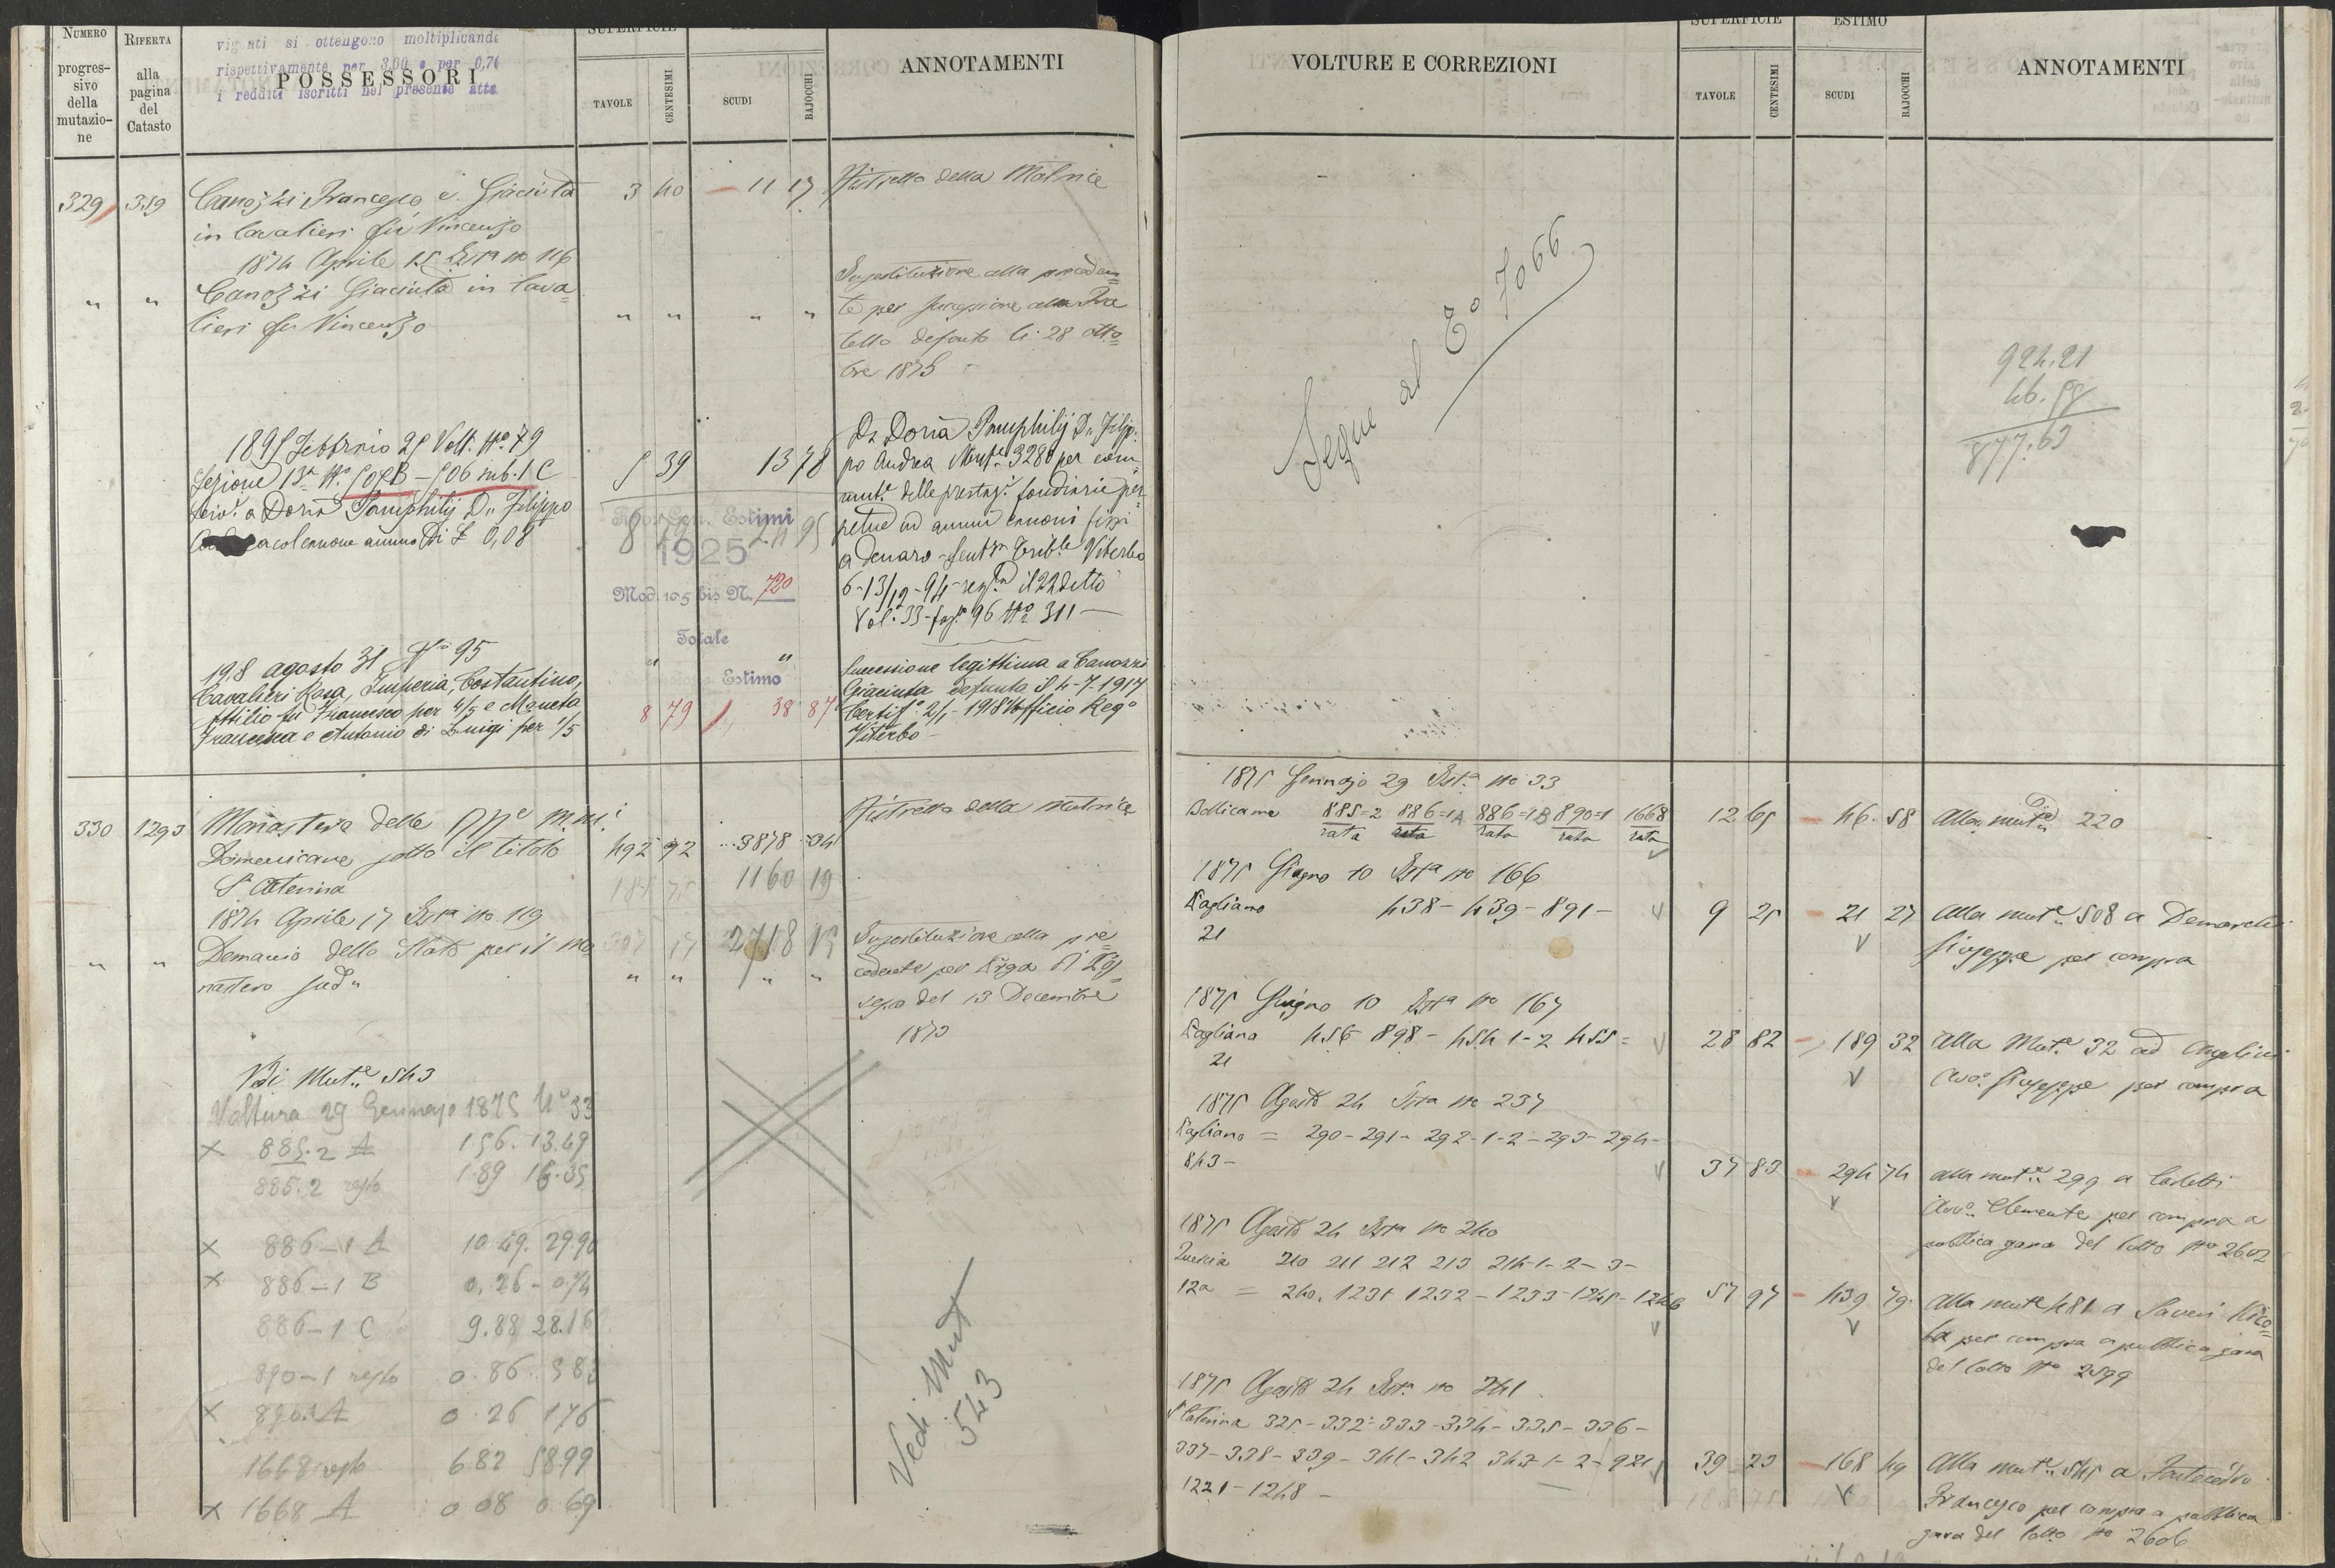 NUMERO
progres-
sivo
della
mutazio-
ne
RIFERTA
alla
pagina
del
Catasto
vigenti si ottengono moltiplicando
rispettivamente per 3,00 e per 0,76
i redditi iscritti nel presente atto
POSSESSORI
SUPERFICIE
TAVOLE
CENTESIMI
SCUDI
BAJOCCHI
ANNOTAMENTI
329 359 Canozzi Francesco e Giacinta 3 40 11 17 Ristretto della Matrice
in Cavalieri fu Vincenzo
1874 Aprile 15 Istra No 116
" " Canozzi Giacinta in Cava=
lieri fu Vincenzo " " " "
Sugostituzione alla preceden=
te per successione alla Fra
tello defonto li 28 otto=
bre 1873
1895 Febbraio 25 Volt. No 79
Sezione 13a No 505B - 506 sub. 1 C
a Doria Pamphilij Dn Filippo
a col canone annuo di £ 0,08
5 39 13 78
Da Doria Pamphilij Dn Filip=
po Andrea Mute 3280 per com=
mut.e delle prestaz.i fondiarie per=
petue ad annui canoni fissi
a denaro - Sentza Trib.le Viterbo
6-13/12-94 - regta il 22 detto
Vol. 33 - fog.o 96 No 311 -
8 79 24 95
Rev. Gen. Estimi
1925
Mod. 105 bis N. 720
Totale
Estimo
1918 agosto 31 No 95
Cavalieri Rosa, Imperia, Costantino,
Attilio fu Francesco per 4/5 e Maneta
Francesca e Antonio di Luigi per 1/5
" "
8 79 38 87
Successione legittima a Canozzi
Giacinta defunta il 4-7-1917
Certif.o 2/1-1918 Ufficio Rego
Viterbo -
330 1293 Monastero delle
Domenicane sotto il titolo
S. Caterina
492 92 3878 34
1160 19
Ristretto della matrice
1874 Aprile 17 Istra No 119
" " Demanio dello Stato per il Mo
nastero sudo
2718 15
" " " "
Sugostituzione alla pre=
cedente per
del 13 Decembre
1873
Vedi Mute 543
Voltura 29 Gennajo 1875 No 33
x 885.2 A 1.56. 13.49
885.2 resto 1.89 16.35
x 886-1 A 10.49. 29.90
x 886-1 B 0.26 - 0.74
886-1 C 9.88 28.16
890-1 resto 0.86 5.83
x 890.1 A 0.26 1.76
1668 resto 6.82 58.99
x 1668 A 0 08 0 69
Vedi Mut
543
VOLTURE E CORREZIONI
SUPERFICIE
TAVOLE
CENTESIMI
ESTIMO
SCUDI
BAJOCCHI
ANNOTAMENTI
Segue al Fo 7066
924.21
46.58
877.63
1875 Gennajo 29 Ista No 33
Bellicame 885=2 886=1A 886=1B 890=1 1668 12 65 46 58 Alla mute 220
rata rata rata rata rata
1875 Giugno 10 Ista No 166
Fagliano 438 - 439 - 891 - 9 25 21 27 Alla mute 508 a Demarchi
21
Giuseppe per compra
1875 Giugno 10 Ista No 167
Fagliano 456 898 - 454 1-2 455 = 28 82 189 32 Alla Mute 32 ad Angelini
21
Avo Giuseppe per compra
1875 Agosto 24 Ista No 237
Fagliano = 290 - 291 - 292-1-2 - 293 - 294 -
843 - 37 83 294 74 alla mute 299 a Carletti
Avo Clemente per compra a
pubblica gara del lotto No 2602
1875 Agosto 24 Ista No 240
Quercia 210 211 212 213 214-1-2-3-
12a = 240. 1231 1232 - 1233 - 1245 - 1246 57 97 439 79 Alla mute 481 a Saveri Nico=
la per compra a pubblica gara
del lotto No 2599
1875 Agosto 24 Ista No 241
S Caterina 325 - 332 - 333 - 334 - 335 - 336 -
337 - 338 - 339 - 341 - 342 343-1-2 - 921 39 23 168 49 Alla mute 545 a
1221 - 1248 -
Francesco per compra a pubblica
gara del lotto No 2606